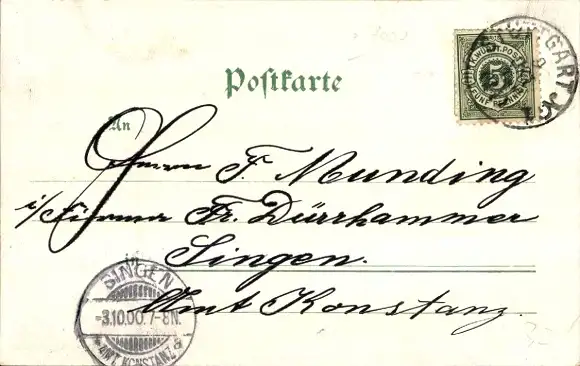 K. WÜRTT. POST
5
FÜNF PFENNIG
STUTTGART
Postkarte
An
Herrn F. Munding
i/ Firma Fr. Dürrhammer
in
Singen.
Amt Konstanz.
SINGEN
-3.10.00.7-8N.
* AMT KONSTANZ a